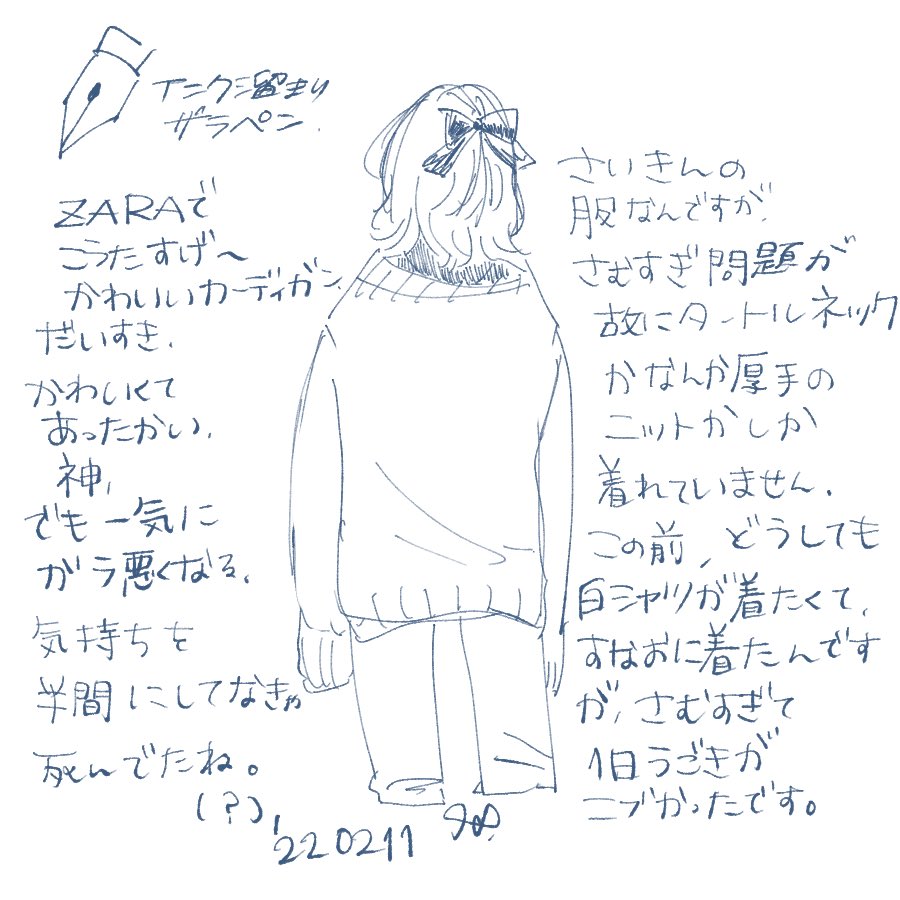 インク溜まり
ザラペン.
ZARAで
こうたすげ〜
かわいいカーディガン.
だいすき.
かわいくて
あったかい.
神,
でも一気に
ガラ悪くなる.
気持ちを
半間にしてなきゃ
死んでたね。
(?),
'220211
さいきんの
服なんですが.
さむすぎ問題が
故にタートルネック
かなんか厚手の
ニットかしか
着れていません.
この前,どうしても
白シャツが着たくて,
すなおに着たんです
が,さむすぎて
1日うごきが
ニブかったです。